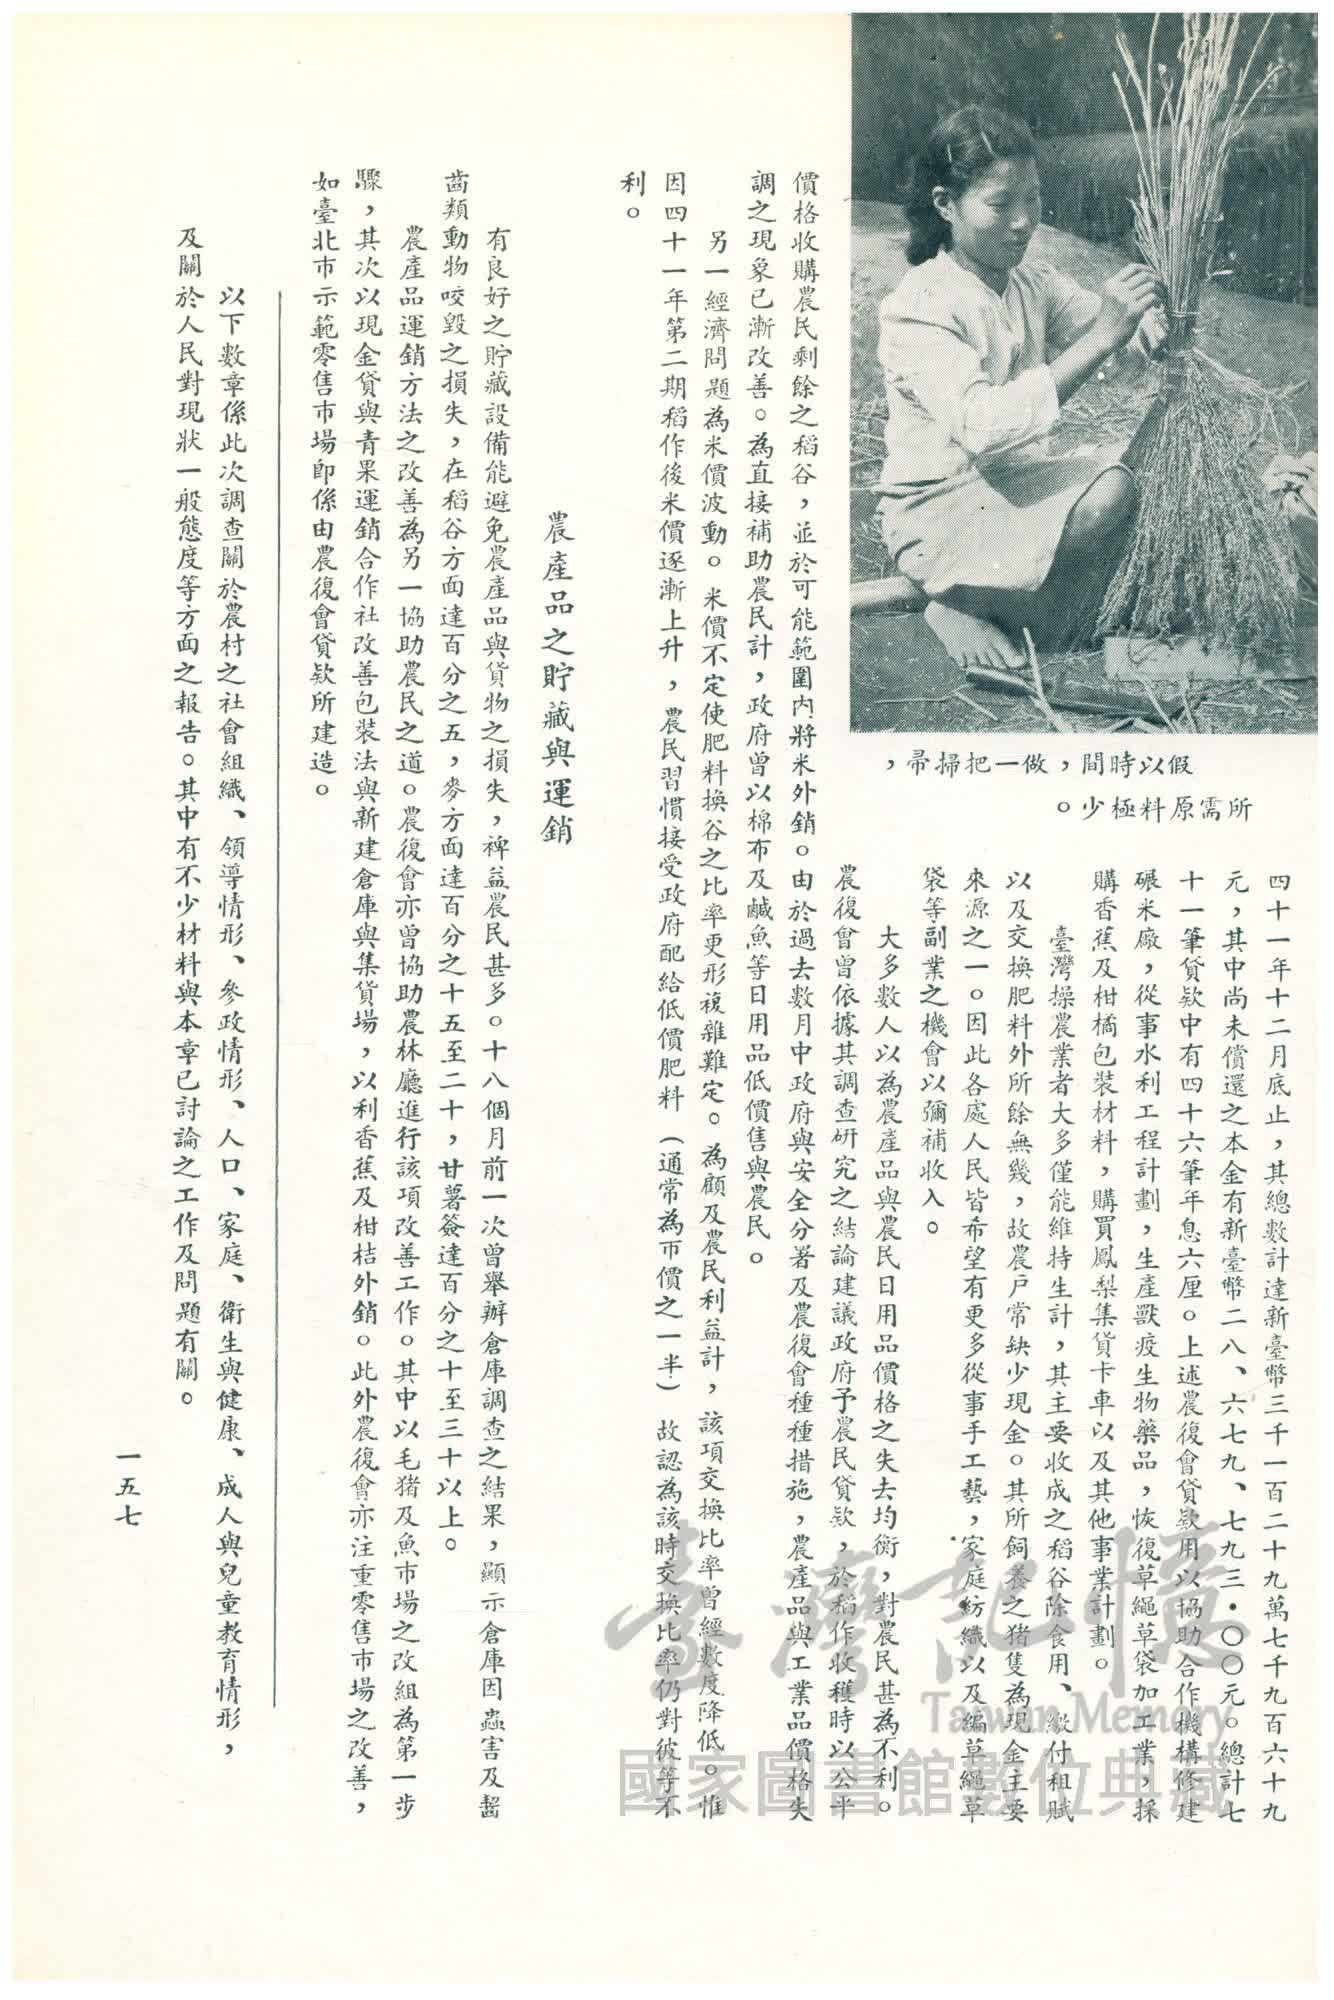 假以時間，做一把掃帚，
所需原料極少。
四十一年十二月底止，其總數計達新臺幣三千一百二十九萬七千九百六十九
元，其中尚未償還之本金有新臺幣二八、六七九、七九三・〇〇元。總計七
十一筆貸欵中有四十六筆年息六厘。上述農復會貸欵用以協助合作機構修建
碾米廠，從事水利工程計劃，生產獸疫生物藥品，恢復草繩草袋加工業，採
購香蕉及柑橘包裝材料，購買鳳梨集貨卡車以及其他事業計劃。
臺灣操農業者大多僅能維持生計，其主要收成之稻谷除食用、繳付租賦
以及交換肥料外所餘無幾，故農戶常缺少現金。其所飼養之猪隻為現金主要
來源之一。因此各處人民皆希望有更多從事手工藝，家庭紡織以及編草繩草
袋等副業之機會以彌補收入。
大多數人以為農產品與農民日用品價格之失去均衡，對農民甚為不利。
農復會曾依據其調查研究之結論建議政府予農民貸欵，於稻作收穫時以公平
價格收購農民剩餘之稻谷，並於可能範圍內將米外銷。由於過去數月中政府與安全分署及農復會種種措施，農產品與工業品價格失
調之現象已漸改善。為直接補助農民計，政府曾以棉布及鹹魚等日用品低價售與農民。
另一經濟問題為米價波動。米價不定使肥料換谷之比率更形複雜難定。為顧及農民利益計，該項交換比率曾經數度降低。惟
因四十一年第二期稻作後米價逐漸上升，農民習慣接受政府配給低價肥料（通常為市價之一半）故認為該時交換比率仍對彼等不
利。
農產品之貯藏與運銷
有良好之貯藏設備能避免農產品與貨物之損失，裨益農民甚多。十八個月前一次曾舉辦倉庫調查之結果，顯示倉庫因蟲害及齧
齒類動物咬毀之損失，在稻谷方面達百分之五，麥方面達百分之十五至二十，甘薯簽達百分之十至三十以上。
農產品運銷方法之改善為另一協助農民之道。農復會亦曾協助農林廳進行該項改善工作。其中以毛猪及魚市場之改組為第一步
驟，其次以現金貸與青果運銷合作社改善包裝法與新建倉庫與集貨場，以利香蕉及柑桔外銷。此外農復會亦注重零售市場之改善，
如臺北市示範零售市場即係由農復會貸欵所建造。
以下數章係此次調查關於農村之社會組織、領導情形、參政情形、人口、家庭、衛生與健康、成人與兒童教育情形，
及關於人民對現狀一般態度等方面之報告。其中有不少材料與本章已討論之工作及問題有關。
一五七
臺灣記憶
Taiwan Memory
國家圖書館數位典藏